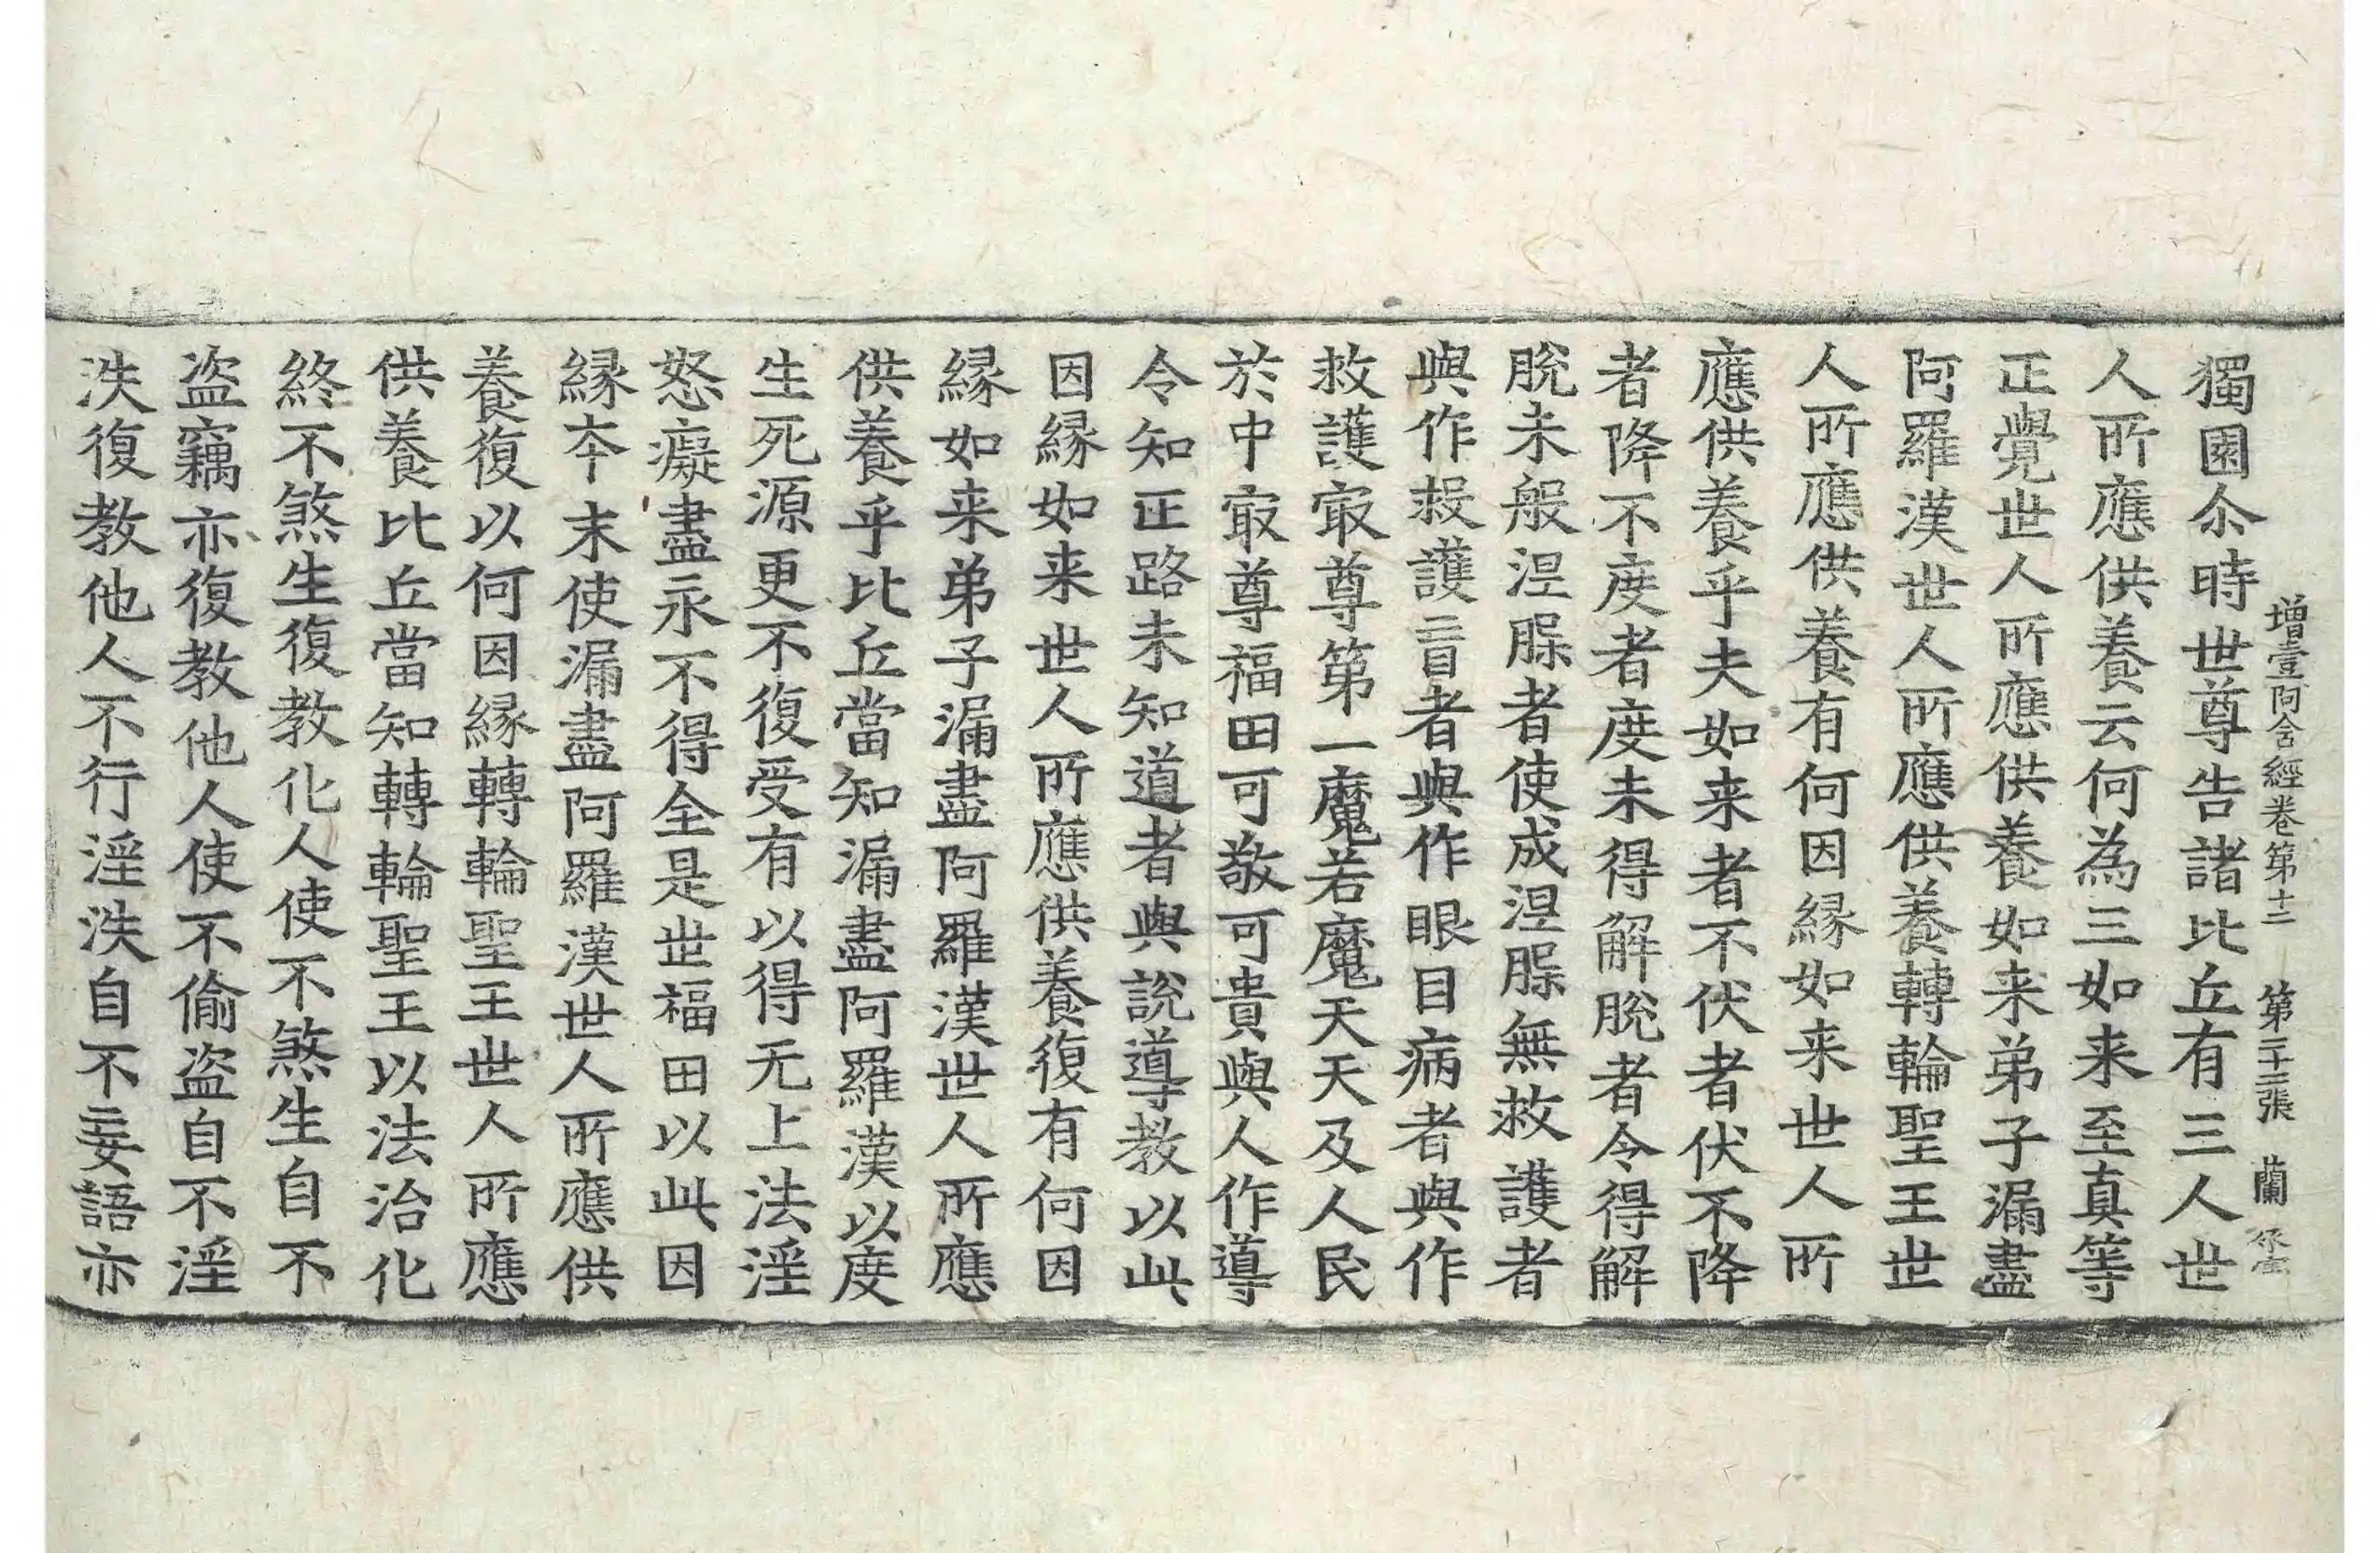 增壹阿含經卷第十二 第二十二張 蘭
獨園尒時世尊告諸比丘有三人世
人所應供養云何為三如来至真等
正覺世人所應供養如来弟子漏盡
阿羅漢世人所應供養轉輪聖王世
人所應供養有何因緣如来世人所
應供養乎夫如来者不伏者伏不降
者降不度者度未得解脫者令得解
脫未般涅槃者使成涅槃無救護者
與作救護盲者與作眼目病者與作
救護冣尊第一魔若魔天天及人民
於中冣尊福田可敬可貴與人作導
令知正路未知道者與說導教以此
因緣如来世人所應供養復有何因
緣如来弟子漏盡阿羅漢世人所應
供養乎比丘當知漏盡阿羅漢以度
生死源更不復受有以得无上法淫
怒癡盡永不得全是世福田以此因
緣夲末使漏盡阿羅漢世人所應供
養復以何因緣轉輪聖王世人所應
供養比丘當知轉輪聖王以法治化
終不煞生復教化人使不煞生自不
盜竊亦復教他人使不偷盜自不淫
泆復教他人不行淫泆自不妄語亦